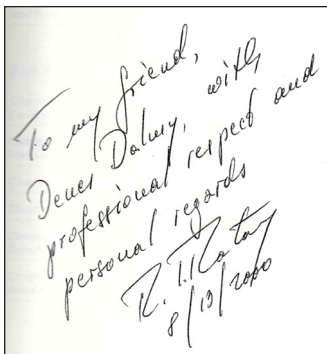 To my friend,
Denes Dalmy, with
professional respect and
personal regards
R. T. Ratay
8/19/2000